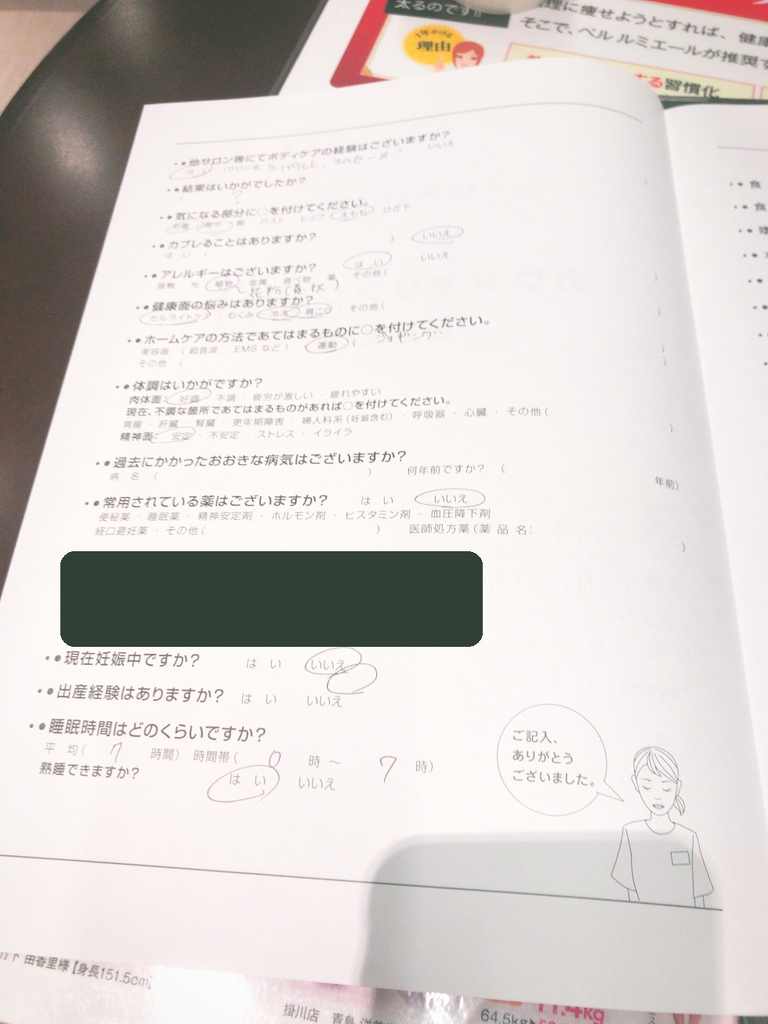 太るのです!!
理に痩せようとすれば、健康
そこで、ベルルミエールが推奨す
理由
る習慣化
• ● 他サロン等にてボディケアの経験はございますか?
はい (サロン名 いいえ
• ● 結果はいかがでしたか?
• ● 気になる部分に○を付けてください。
背中 腕 バスト ・ ヒップ 太もも ひざ下
• ● カブレることはありますか?
はい ( ) いいえ
• ● アレルギーはございますか? はい いいえ
接触 ・ 光 植物 金属 食べ物 薬 その他(
花粉
• ● 健康面の悩みはありますか?
セルライトケア ・ むくみ 冷え 肩こり ・ その他(
• ● ホームケアの方法であてはまるものに○を付けてください。
美容器 (超音波 ・ EMSなど) 運動 (
その他 (
• ● 体調はいかがですか?
肉体面: 好調 ・ 不調 ・ 疲労が激しい ・ 疲れやすい
現在、不調な箇所であてはまるものがあれば○を付けてください。
胃腸 ・ 肝臓 ・ 腎臓 ・ 更年期障害 ・ 婦人科系(妊娠含む) ・ 呼吸器 ・ 心臓 ・ その他(
精神面: 安定 ・ 不安定 ・ ストレス ・ イライラ
• ● 過去にかかったおおきな病気はございますか?
病 名 ( ) 何年前ですか? ( 年前)
• ● 常用されている薬はございますか? はい いいえ
便秘薬 ・ 睡眠薬 ・ 精神安定剤 ・ ホルモン剤 ・ ヒスタミン剤 ・ 血圧降下剤
経口避妊薬 ・ その他( ) 医師処方薬(薬品名: )
• ● 現在妊娠中ですか? はい いいえ
• ● 出産経験はありますか? はい いいえ
• ● 睡眠時間はどのくらいですか?
平均( 7 時間) 時間帯( 0 時 ～ 7 時)
熟睡できますか? はい いいえ
ご記入、
ありがとう
ございました。
• ● 食
• ● 食
田香里様【身長151.5cm】
掛川店
64.5kg
11.4kg